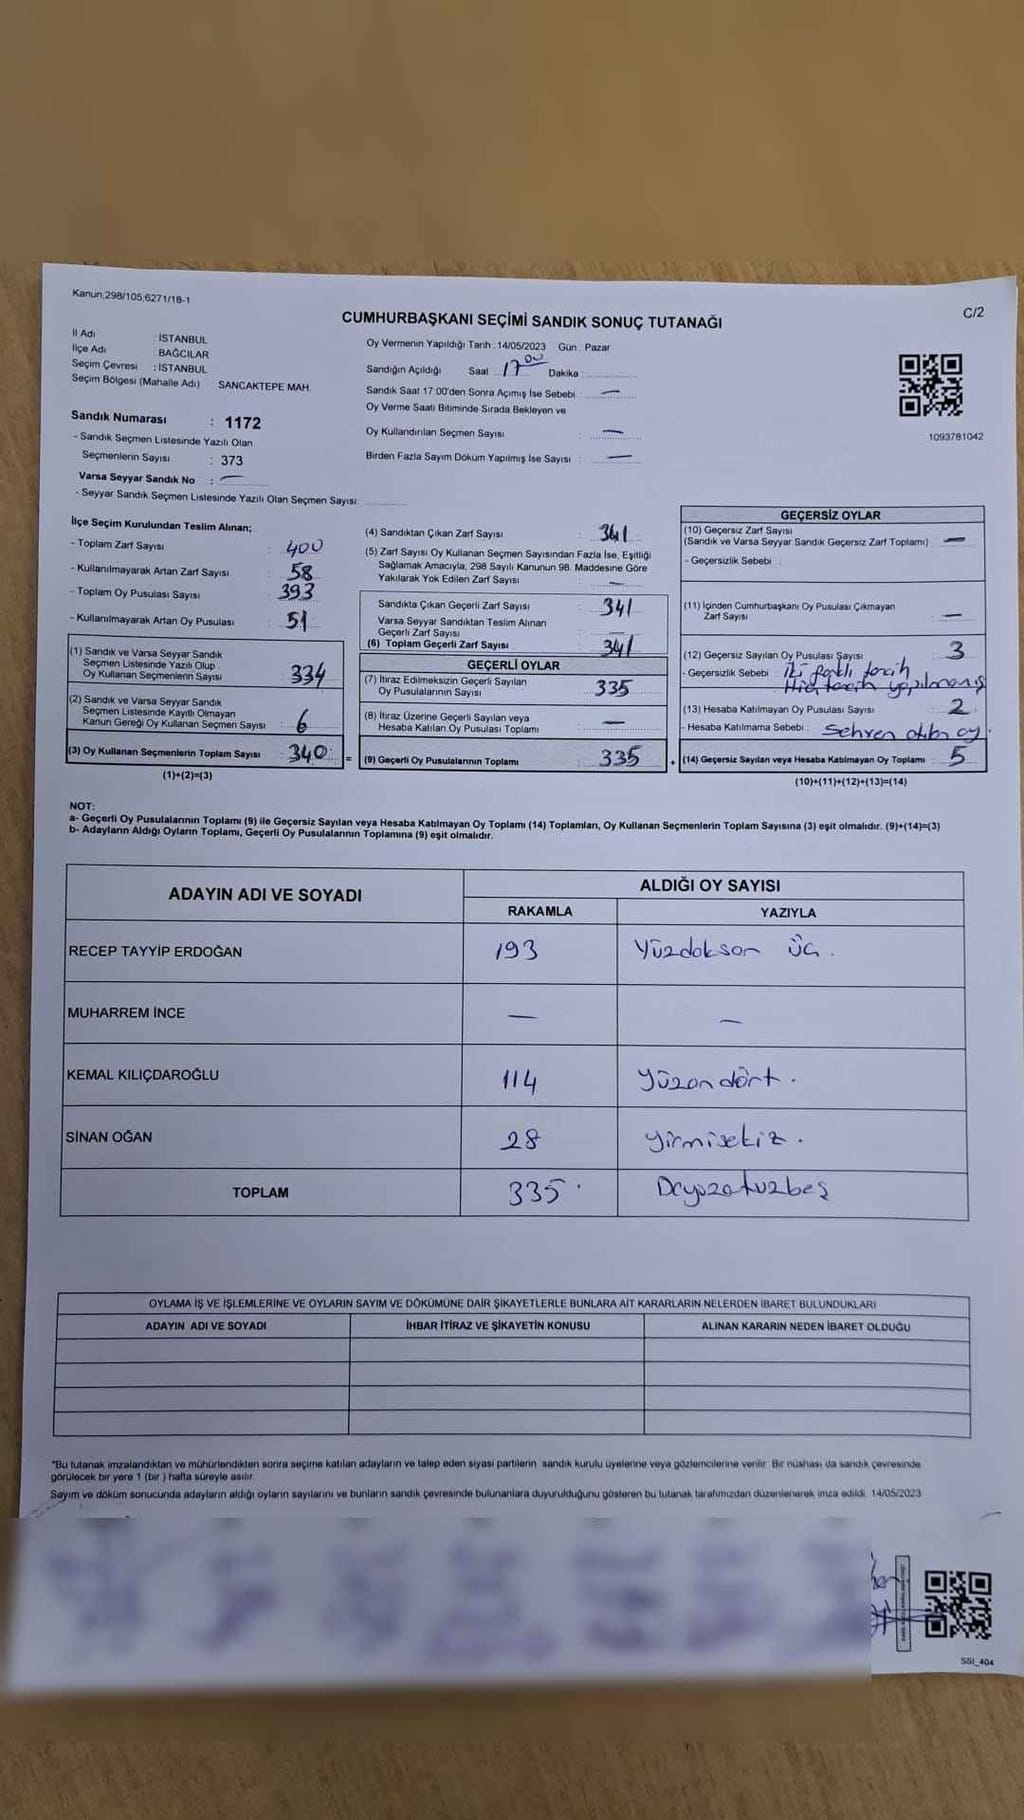 Kanun;298/105;6271/18-1
C/2
CUMHURBAŞKANI SEÇİMİ SANDIK SONUÇ TUTANAĞI
İl Adı : İSTANBUL
İlçe Adı : BAĞCILAR
Seçim Çevresi : İSTANBUL
Seçim Bölgesi (Mahalle Adı) : SANCAKTEPE MAH.
Sandık Numarası : 1172
- Sandık Seçmen Listesinde Yazılı Olan
Seçmenlerin Sayısı : 373
Varsa Seyyar Sandık No : —
- Seyyar Sandık Seçmen Listesinde Yazılı Olan Seçmen Sayısı:
Oy Vermenin Yapıldığı Tarih : 14/05/2023 Gün : Pazar
Sandığın Açıldığı Saat 17 00 Dakika :
Sandık Saat 17:00'den Sonra Açımış İse Sebebi : —
Oy Verme Saati Bitiminde Sırada Bekleyen ve
Oy Kullandırılan Seçmen Sayısı : —
Birden Fazla Sayım Döküm Yapılmış İse Sayısı : —
1093781042
İlçe Seçim Kurulundan Teslim Alınan;
- Toplam Zarf Sayısı : 400
- Kullanılmayarak Artan Zarf Sayısı : 58
- Toplam Oy Pusulası Sayısı : 393
- Kullanılmayarak Artan Oy Pusulası : 51
(1) Sandık ve Varsa Seyyar Sandık
Seçmen Listesinde Yazılı Olup
Oy Kullanan Seçmenlerin Sayısı : 334
(2) Sandık ve Varsa Seyyar Sandık
Seçmen Listesinde Kayıtlı Olmayan
Kanun Gereği Oy Kullanan Seçmen Sayısı : 6
(3) Oy Kullanan Seçmenlerin Toplam Sayısı : 340 =
(1)+(2)=(3)
(4) Sandıktan Çıkan Zarf Sayısı : 341
(5) Zarf Sayısı Oy Kullanan Seçmen Sayısından Fazla İse, Eşitliği
Sağlamak Amacıyla, 298 Sayılı Kanunun 98. Maddesine Göre
Yakılarak Yok Edilen Zarf Sayısı : —
Sandıkta Çıkan Geçerli Zarf Sayısı : 341
Varsa Seyyar Sandıktan Teslim Alınan
Geçerli Zarf Sayısı : —
(6) Toplam Geçerli Zarf Sayısı : 341
GEÇERLİ OYLAR
(7) İtiraz Edilmeksizin Geçerli Sayılan
Oy Pusulalarının Sayısı : 335
(8) İtiraz Üzerine Geçerli Sayılan veya
Hesaba Katılan Oy Pusulası Toplamı : —
(9) Geçerli Oy Pusulalarının Toplamı : 335 +
GEÇERSİZ OYLAR
(10) Geçersiz Zarf Sayısı
(Sandık ve Varsa Seyyar Sandık Geçersiz Zarf Toplamı) : —
- Geçersizlik Sebebi :
(11) İçinden Cumhurbaşkanı Oy Pusulası Çıkmayan
Zarf Sayısı : —
(12) Geçersiz Sayılan Oy Pusulası Sayısı : 3
- Geçersizlik Sebebi : İki farklı tercih
Hiç tercih yapılmamış
(13) Hesaba Katılmayan Oy Pusulası Sayısı : 2
- Hesaba Katılmama Sebebi : Sehven atılan oy.
(14) Geçersiz Sayılan veya Hesaba Katılmayan Oy Toplamı : 5
(10)+(11)+(12)+(13)=(14)
NOT:
a- Geçerli Oy Pusulalarının Toplamı (9) ile Geçersiz Sayılan veya Hesaba Katılmayan Oy Toplamı (14) Toplamları, Oy Kullanan Seçmenlerin Toplam Sayısına (3) eşit olmalıdır. (9)+(14)=(3)
b- Adayların Aldığı Oyların Toplamı, Geçerli Oy Pusulalarının Toplamına (9) eşit olmalıdır.
ADAYIN ADI VE SOYADI
ALDIĞI OY SAYISI
RAKAMLA YAZIYLA
RECEP TAYYİP ERDOĞAN 193 Yüzdoksan üç.
MUHARREM İNCE — —
KEMAL KILIÇDAROĞLU 114 Yüzondört.
SİNAN OĞAN 28 Yirmisekiz.
TOPLAM 335
OYLAMA İŞ VE İŞLEMLERİNE VE OYLARIN SAYIM VE DÖKÜMÜNE DAİR ŞİKAYETLERLE BUNLARA AİT KARARLARIN NELERDEN İBARET BULUNDUKLARI
ADAYIN ADI VE SOYADI İHBAR İTİRAZ VE ŞİKAYETİN KONUSU ALINAN KARARIN NEDEN İBARET OLDUĞU
"Bu tutanak imzalandıktan ve mühürlendikten sonra seçime katılan adayların ve talep eden siyasi partilerin sandık kurulu üyelerine veya gözlemcilerine verilir. Bir nüshası da sandık çevresinde
görülecek bir yere 1 (bir ) hafta süreyle asılır.
Sayım ve döküm sonucunda adayların aldığı oyların sayılarını ve bunların sandık çevresinde bulunanlara duyurulduğunu gösteren bu tutanak tarafımızdan düzenlenerek imza edildi. 14/05/2023
SSI_404